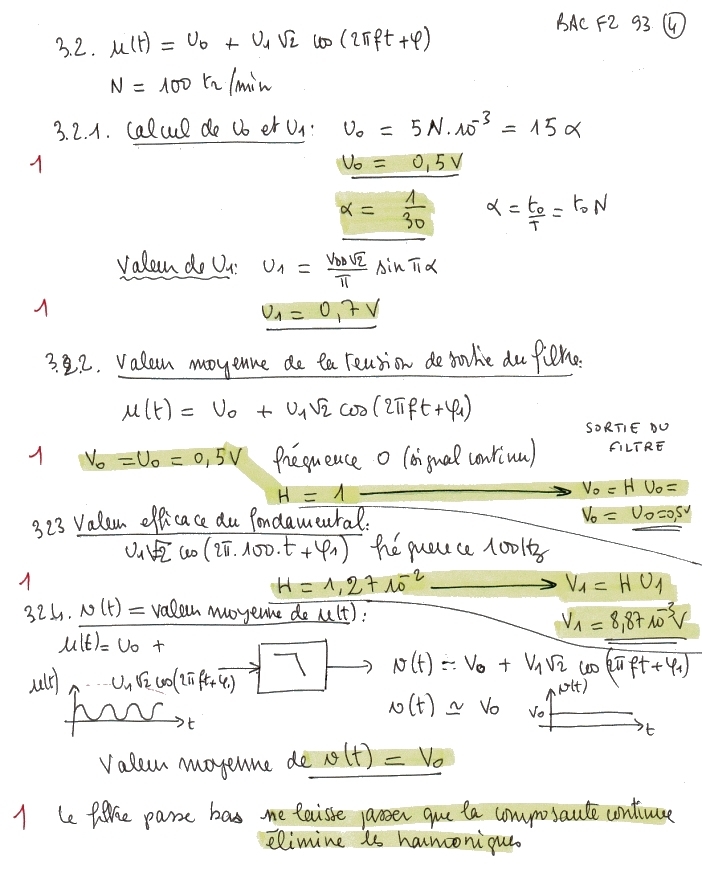 BAC F2 93 ④
3.2. u(t) = U₀ + U₁ √2 cos (2πft + φ)
N = 100 tr/min
3.2.1. Calcul de U₀ et U₁ : U₀ = 5 N. 10⁻³ = 15 α
1 U₀ = 0,5 V
α = 1/30 α = t₀/T = t₀ N
Valeur de U₁ : U₁ = VDD √2/π sin π α
1 U₁ = 0,7 V
3.2.2. Valeur moyenne de la tension de sortie du filtre:
u(t) = U₀ + U₁ √2 cos (2πft + φ₁)
SORTIE DU
FILTRE
1 V₀ = U₀ = 0,5 V fréquence 0 (signal continu)
H = 1 → V₀ = H U₀ =
V₀ = U₀ = 0,5 V
323 Valeur efficace du fondamental:
U₁ √2 cos (2π. 100. t + φ₁) fréquence 100 Hz
1 H = 1,27 10⁻² → V₁ = H U₁
V₁ = 8,87 10⁻³ V
324. v(t) = valeur moyenne de u(t) :
u(t) = U₀ +
U₁ √2 cos (2πft + φ₁) → v(t) = V₀ + V₁ √2 cos (2πft + φ₁)
u(t) t v(t) ≃ V₀ V₀ v(t) t
Valeur moyenne de v(t) = V₀
1 Le filtre passe bas ne laisse passer que la composante continue
élimine les harmoniques